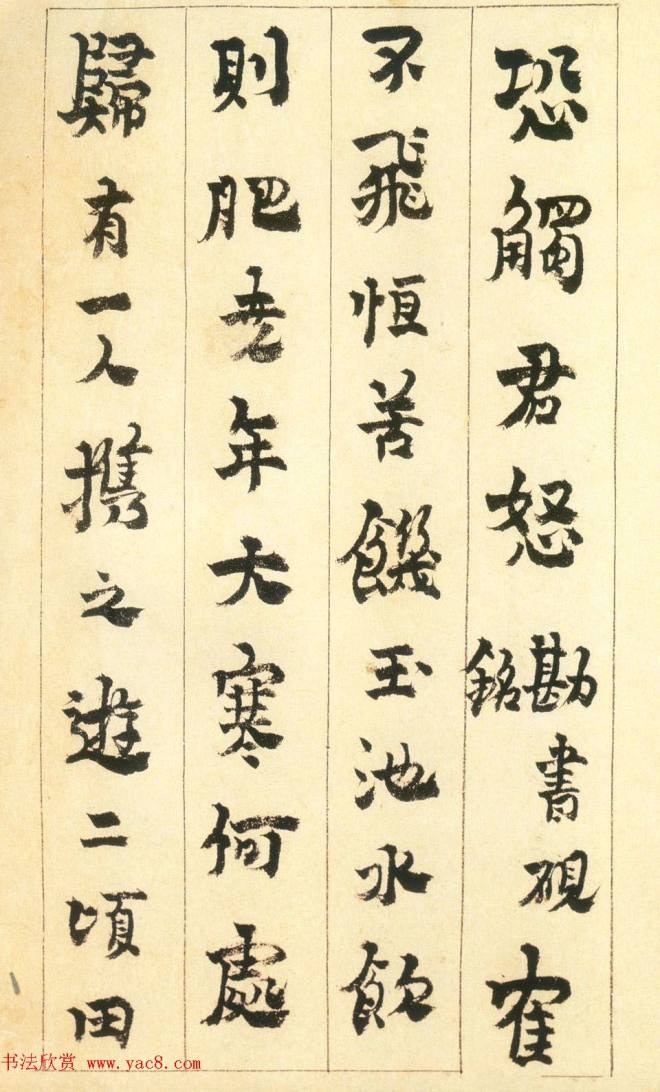 恐觸君怒 勘書硯銘 隺
不飛恒苦饑玉池水飲
則肥吾年大寒何處
歸有一人攜之遊二頃田
书法欣赏 www.yac8.com